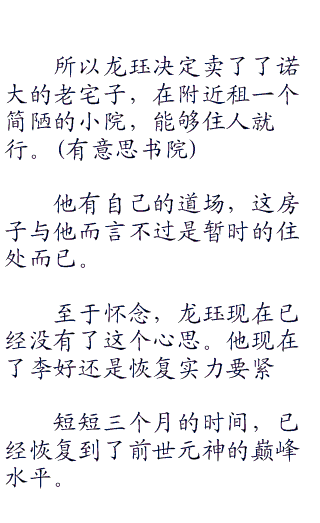 所以龙珏决定卖了了诺
大的老宅子，在附近租一个
简陋的小院，能够住人就
行。(有意思书院)
他有自己的道场，这房
子与他而言不过是暂时的住
处而已。
至于怀念，龙珏现在已
经没有了这个心思。他现在
了李好还是恢复实力要紧
短短三个月的时间，已
经恢复到了前世元神的巅峰
水平。